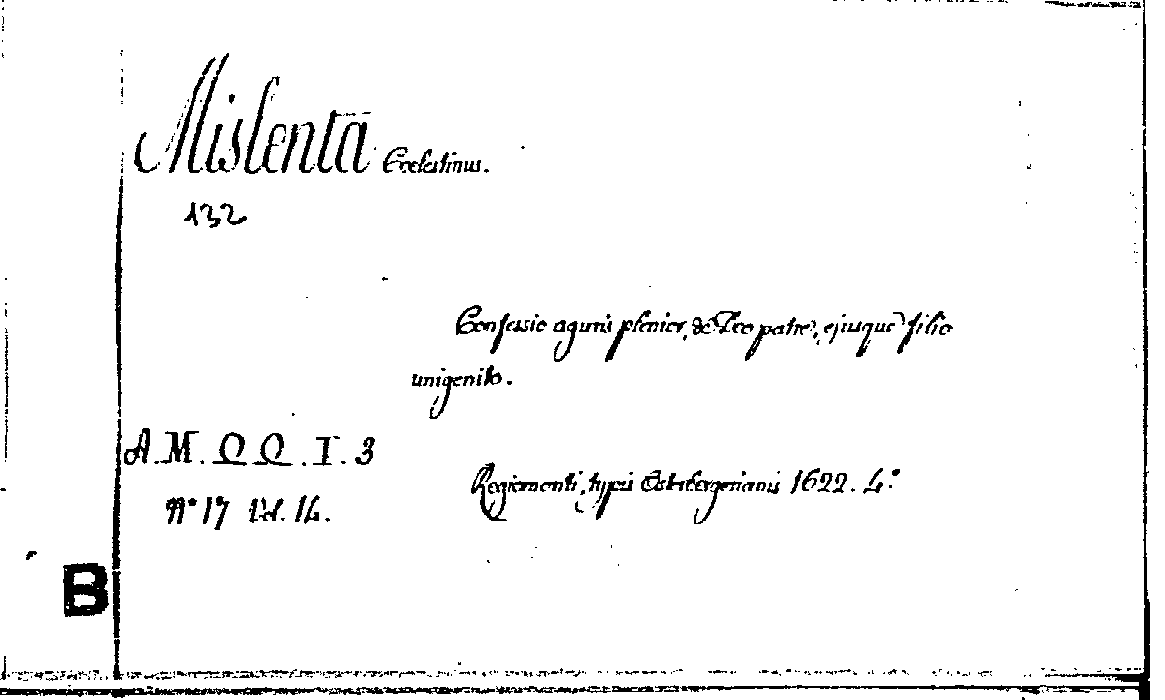 Mislenta Coelestinus.
132
Confessio aguni plenior, de Deo patre, ejusque filio
unigenito.
A. M. Q Q. I. 3
Nº 17 Vol. 14.
Regiomonti, typis Osterbergerianis 1622. 4.º
B